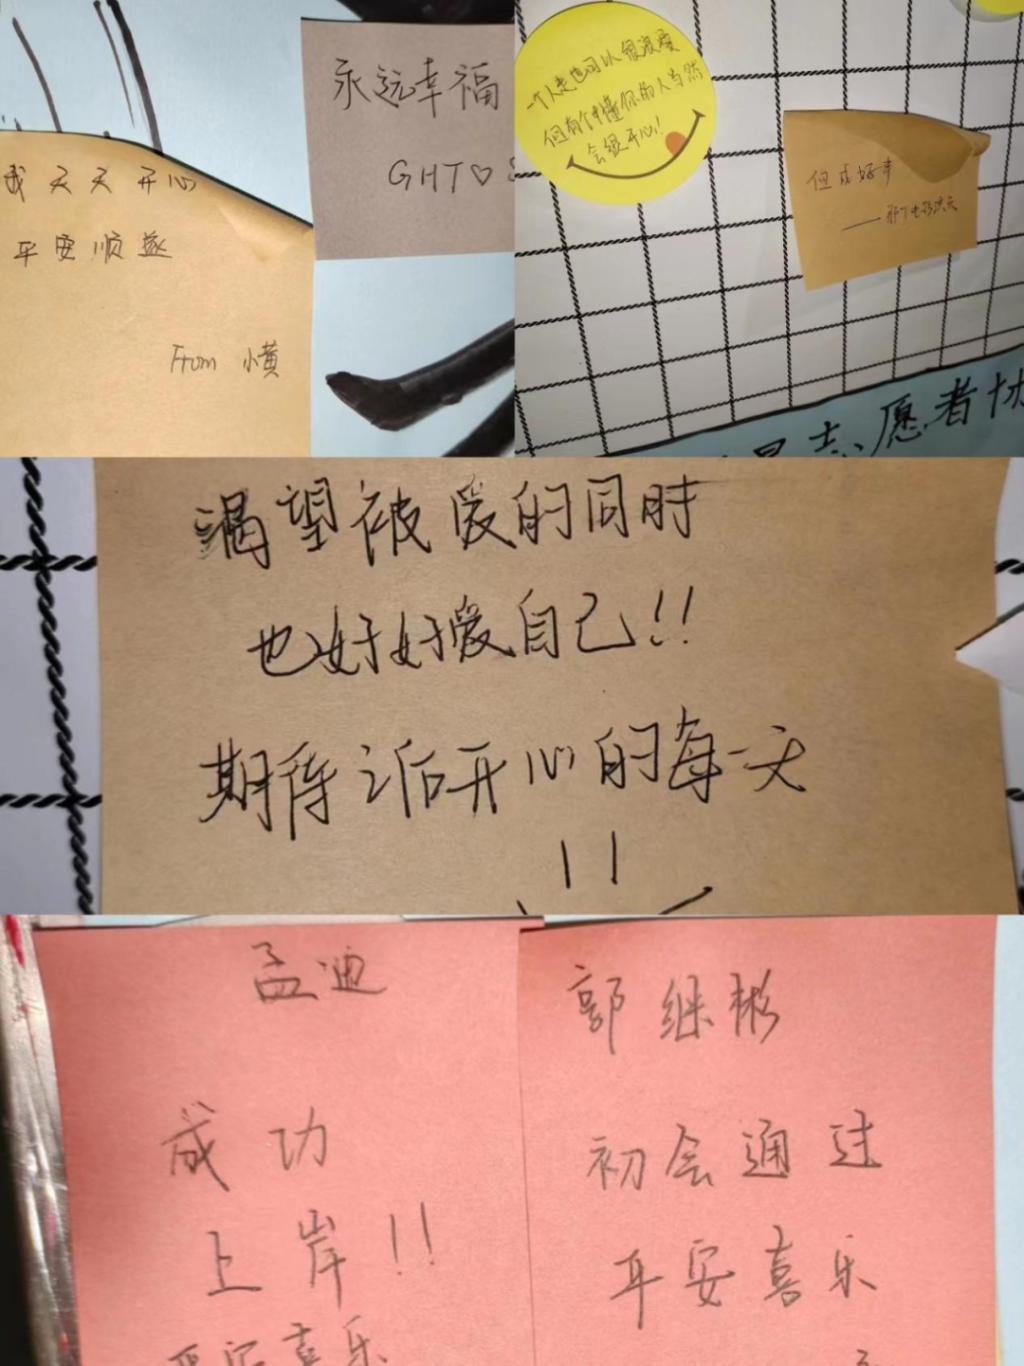 我天天开心
平安顺遂
From 小黄
永远幸福
GHT♡
一个人走也可以很浪漫
但有个懂你的人当然
会很开心!
但求好事
志愿者协
渴望被爱的同时
也好好爱自己!!
期待之后开心的每一天
!!
孟迪
成功
上岸!!
平安喜乐
郭继彬
初会通过
平安喜乐